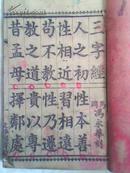 三字經
人之初性本善
性相近習相遠
苟不教性乃遷
教之道貴以專
昔孟母擇鄰處